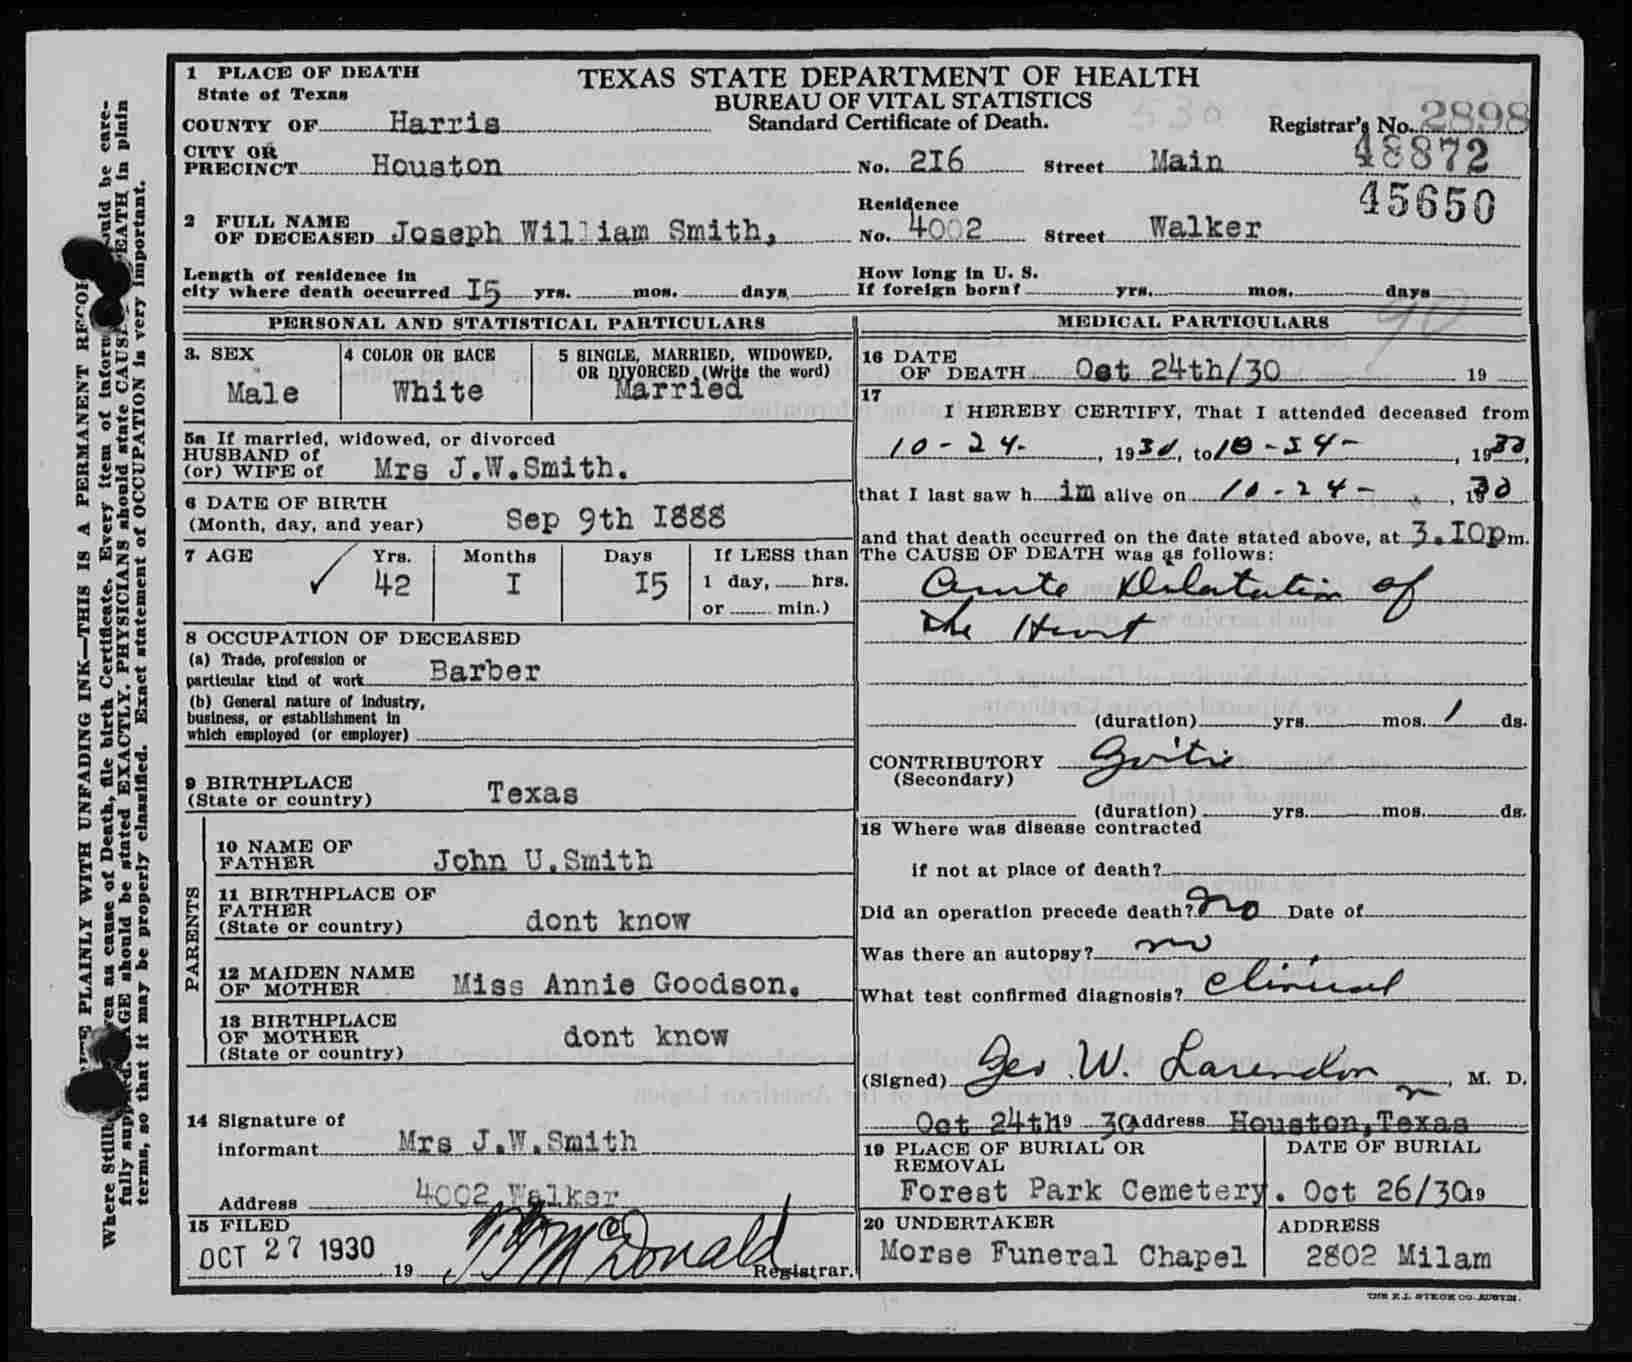 1 PLACE OF DEATH
State of Texas
TEXAS STATE DEPARTMENT OF HEALTH
BUREAU OF VITAL STATISTICS
Standard Certificate of Death.
COUNTY OF Harris
Registrar's No. 2898
48872
45650
CITY OR
PRECINCT Houston No. 216 Street Main
2 FULL NAME
OF DECEASED Joseph William Smith,
Residence
No. 4002 Street Walker
Length of residence in
city where death occurred 15 yrs. mos. days
How long in U. S.
If foreign born? yrs. mos. days
90
PERSONAL AND STATISTICAL PARTICULARS
3. SEX
Male
4 COLOR OR RACE
White
5 SINGLE, MARRIED, WIDOWED,
OR DIVORCED (Write the word)
Married
5a If married, widowed, or divorced
HUSBAND of
(or) WIFE of Mrs J.W.Smith.
6 DATE OF BIRTH
(Month, day, and year) Sep 9th 1888
7 AGE Yrs. Months Days If LESS than
42 I 15 1 day, hrs.
or min.)
8 OCCUPATION OF DECEASED
(a) Trade, profession or
particular kind of work Barber
(b) General nature of industry,
business, or establishment in
which employed (or employer)
9 BIRTHPLACE
(State or country) Texas
PARENTS
10 NAME OF
FATHER John U.Smith
11 BIRTHPLACE OF
FATHER
(State or country) dont know
12 MAIDEN NAME
OF MOTHER Miss Annie Goodson.
13 BIRTHPLACE
OF MOTHER
(State or country) dont know
14 Signature of
informant Mrs J.W.Smith
Address 4002 Walker
15 FILED
OCT 27 1930 19 McDonald Registrar.
MEDICAL PARTICULARS
16 DATE
OF DEATH Oct 24th/30 19
17
I HEREBY CERTIFY, That I attended deceased from
10-24-, 1930, to 10-24-, 1930,
that I last saw him alive on 10-24-, 1930
and that death occurred on the date stated above, at 3.10pm.
The CAUSE OF DEATH was as follows:
Acute Dilatation of
the Heart
(duration) yrs. mos. 1 ds.
CONTRIBUTORY Goitre
(Secondary)
(duration) yrs. mos. ds.
18 Where was disease contracted
if not at place of death?
Did an operation precede death? No Date of
Was there an autopsy? no
What test confirmed diagnosis? Clinical
(Signed) Geo W. Larendon, M. D.
Oct 24th 9 30 Address Houston,Texas
19 PLACE OF BURIAL OR
REMOVAL
Forest Park Cemetery.
DATE OF BURIAL
Oct 26/30 19
20 UNDERTAKER
Morse Funeral Chapel
ADDRESS
2802 Milam
THE E.L. STECK CO. AUSTIN.
PLAINLY WITH UNFADING INK—THIS IS A PERMANENT
Where Still as cause of Death, file birth Certificate. Every item of should be care-
fully AGE should be stated EXACTLY. PHYSICIANS should state CAUSE DEATH in plain
terms, so that it may be properly classified. Exact statement of OCCUPATION is very important.